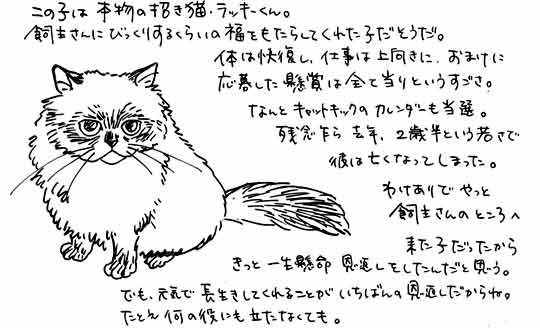 この子は本物の招き猫・ラッキーくん。
飼主さんにびっくりするくらいの福をもたらしてくれた子だそうだ。
体は快復し、仕事は上向きに、おまけに
応募した懸賞は全て当りというすごさ。
なんとキャットキックのカレンダーも当選。
残念乍ら去年、2歳半という若さで
彼は亡くなってしまった。
わけありでやっと
飼主さんのところへ
来た子だったから
きっと一生懸命恩返しをしたんだと思う。
でも、元気で長生きしてくれることがいちばんの恩返しだからね。
たとえ何の役にも立たなくても。